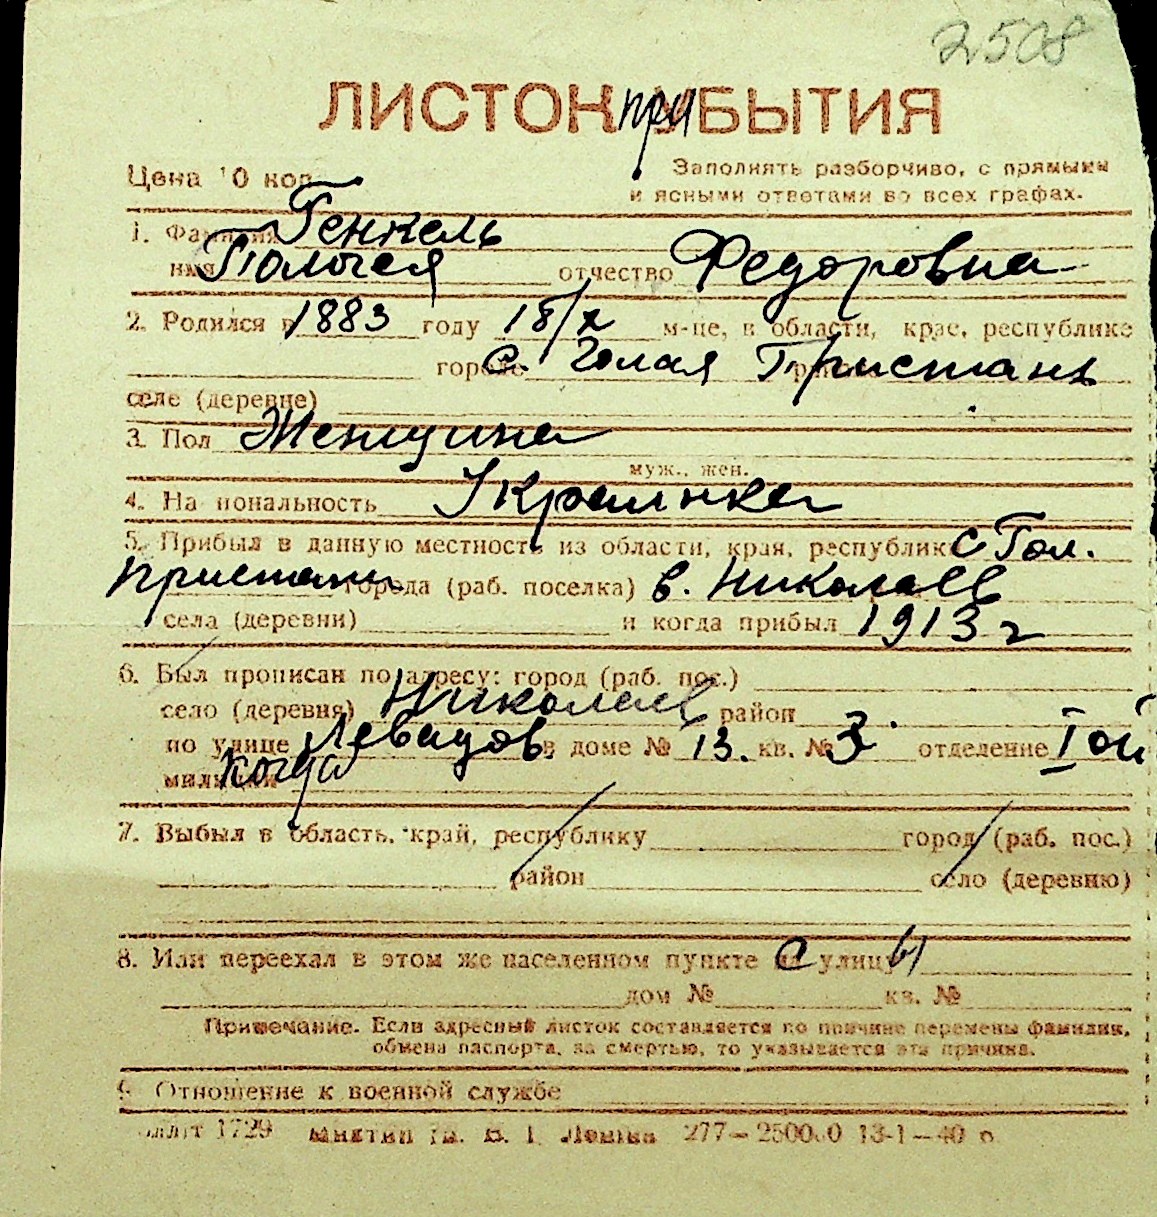 2508
ЛИСТОК при УБЫТИЯ
Цена 10 коп.
Заполнять разборчиво, с прямыми
и ясными ответами во всех графах.
1. Фамилия Генкель
имя Пологея отчество Федоровна
2. Родился в 1883 году 18/X м-це, в области, крае, республике
городе с. Голая Пристань
селе (деревне)
3. Пол Женщина
муж., жен.
4. Национальность Украинка
5. Прибыл в данную местность из области, края, республики с Гол.
Пристани города (раб. поселка) в. Николаев
села (деревни) и когда прибыл 1913 г
6. Был прописан по адресу: город (раб. пос.)
село (деревня) Николаев район
по улице Левацов. в доме № 13. кв. № 3. отделение I ой
милиции когда
7. Выбыл в область, край, республику город (раб. пос.)
район село (деревню)
8. Или переехал в этом же населенном пункте с улицы
дом № кв. №
Примечание. Если адресный листок составляется по причине перемены фамилии,
обмена паспорта, за смертью, то указывается эта причина.
9. Отношение к военной службе
1729 им. В. И. Ленина 277—250000 13-1—40 г.